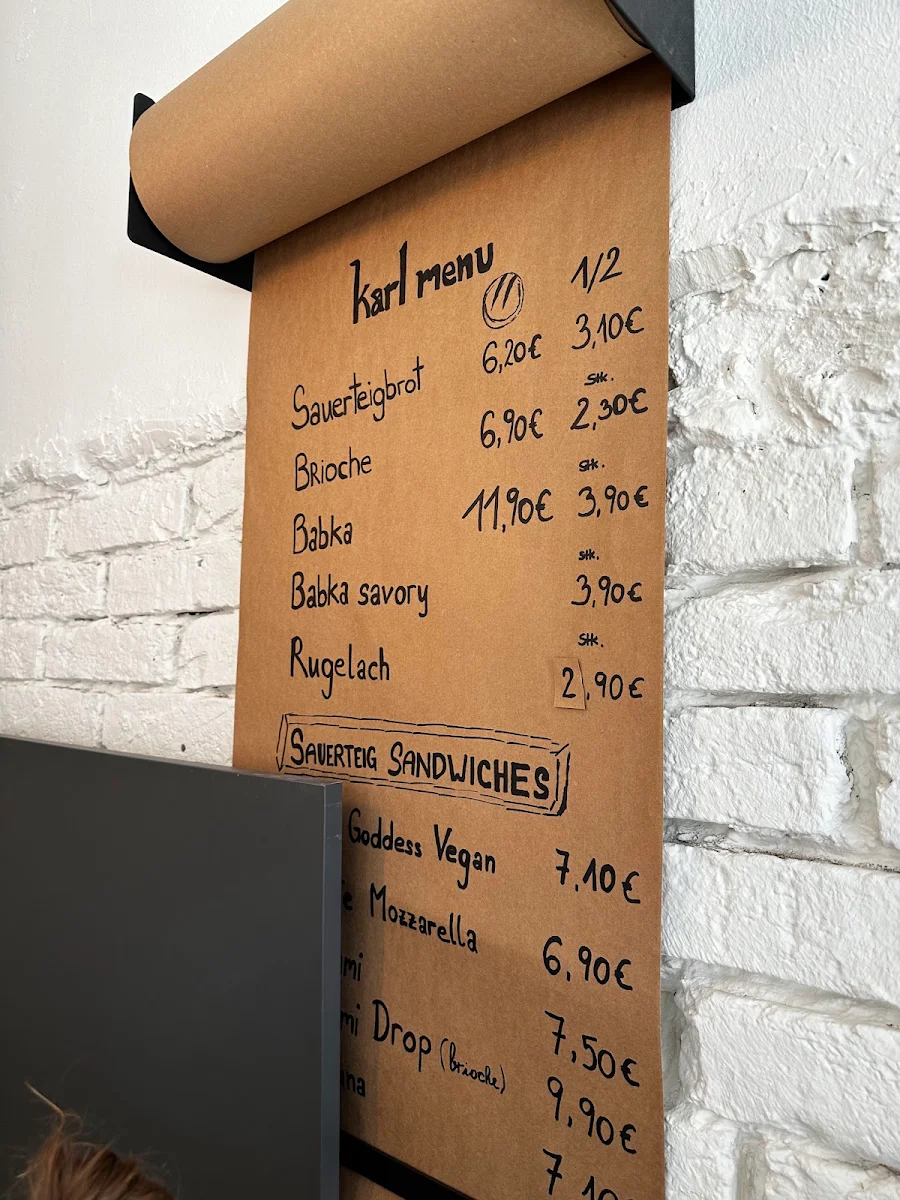 karl menu
1/2
Sauerteigbrot 6,20€ 3,10€
Stk.
Brioche 6,90€ 2,30€
Stk.
Babka 11,90€ 3,90€
Stk.
Babka savory 3,90€
Stk.
Rugelach 2,90€
SAUERTEIG SANDWICHES
Goddess Vegan 7.10€
Mozzarella 6.90€
7,50€
Drop (brioche) 9,90€